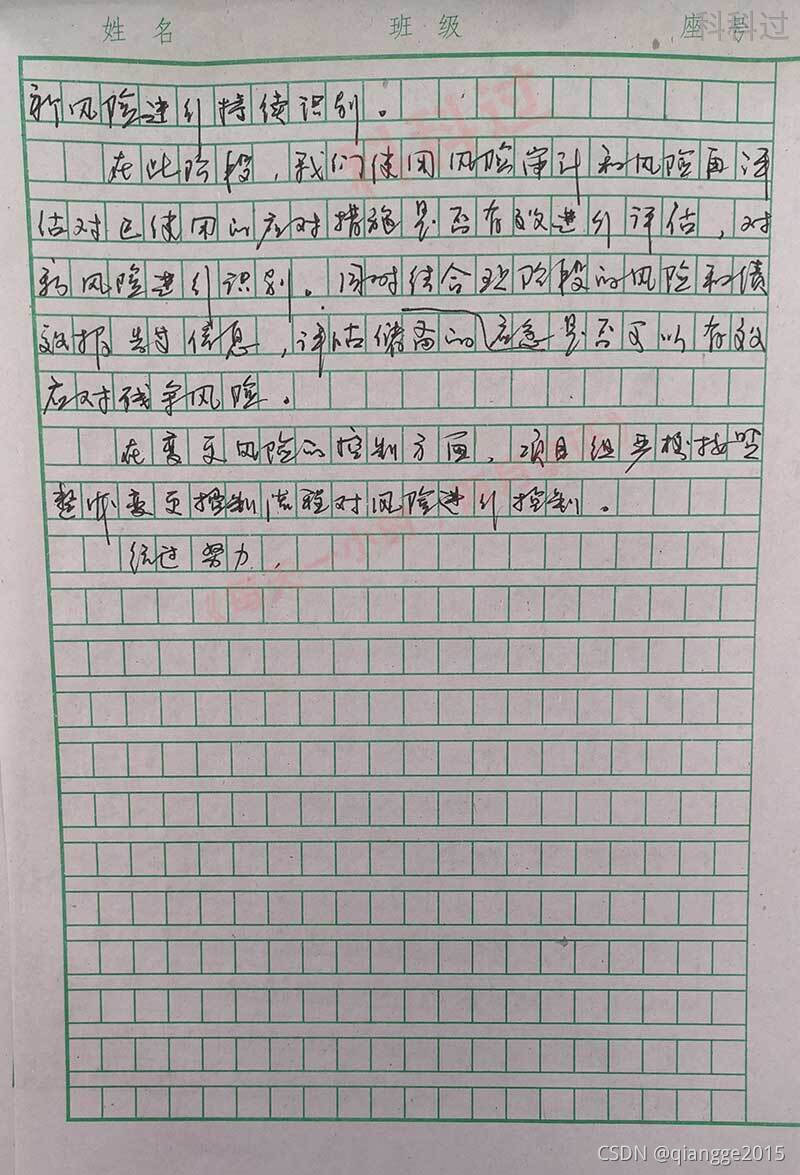 姓名 班级 座号
科科过
新风险进行持续识别。
在此阶段，我们使用风险审计和风险再评
估对已使用的应对措施是否有效进行评估，对
新风险进行识别。同时结合现阶段的风险和绩
效报告过信息，评估储备的应急是否可以有效
应对残余风险。
在变更风险的控制方面，项目组严格按照
整体变更控制流程对风险进行控制。
经过努力，
科科过
CSDN @qiangge2015